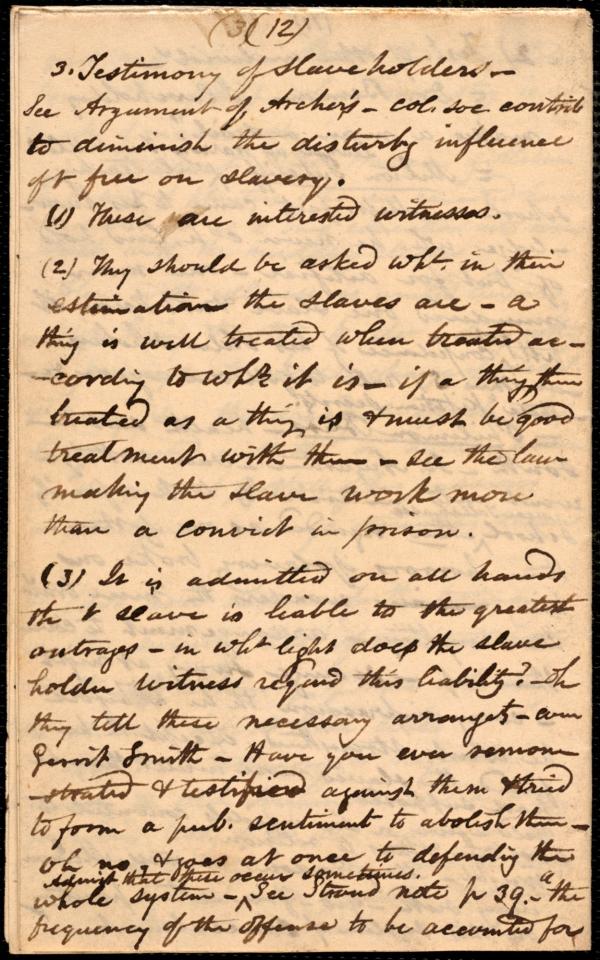 (3(12)
3. Testimony of slaveholders —
See Argument of Archer's — col. soc contrib
to diminish the disturbg influence
of t free on slavery.
(1) These are interested witnesses.
(2) They should be asked wht. in their
estimation the slaves are — a
thing is well treated when treated ac-
-cording to wht it is — if a thing then
treated as a thing is & must be good
treatment with them — see the law
making the slave work more
than a convict in prison.
(3) It is admitted on all hands
tht t slave is liable to the greatest
outrages — in wht light does the slave
holder witness regard this liability? — Oh
they tell these necessary arrangets — even
Gerrit Smith — Have you ever remon
-strated & testified against them & tried
to form a pub. sentiment to abolish them —
Oh no, & goes at once to defending the
Admit that these occur sometimes.
whole system — ^ See Stroud note p 39. — a the
frequency of the offense to be accounted for